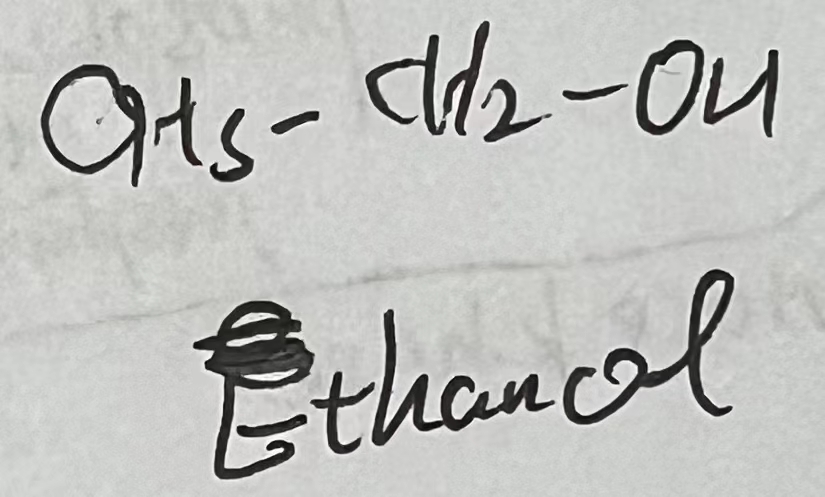 CH3-CH2-OH
Ethanol